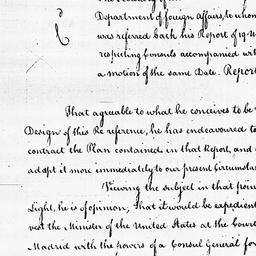 Department of foreign Affairs, to whom
was referred back his Report of 19
respecting Consuls accompanied with
a motion of the same Date. Report
That agreable to what he conceives to be
Design of this Re reference, he has endeavoured to
contract the Plan contained in that Report, and
adapt it more immediately to our present Circumstan
Viewing the subject in that point
Light, he is of opinion, that it would be expedient
vest the Minister of the United States at the Court
Madrid with the powers of a Consul General for